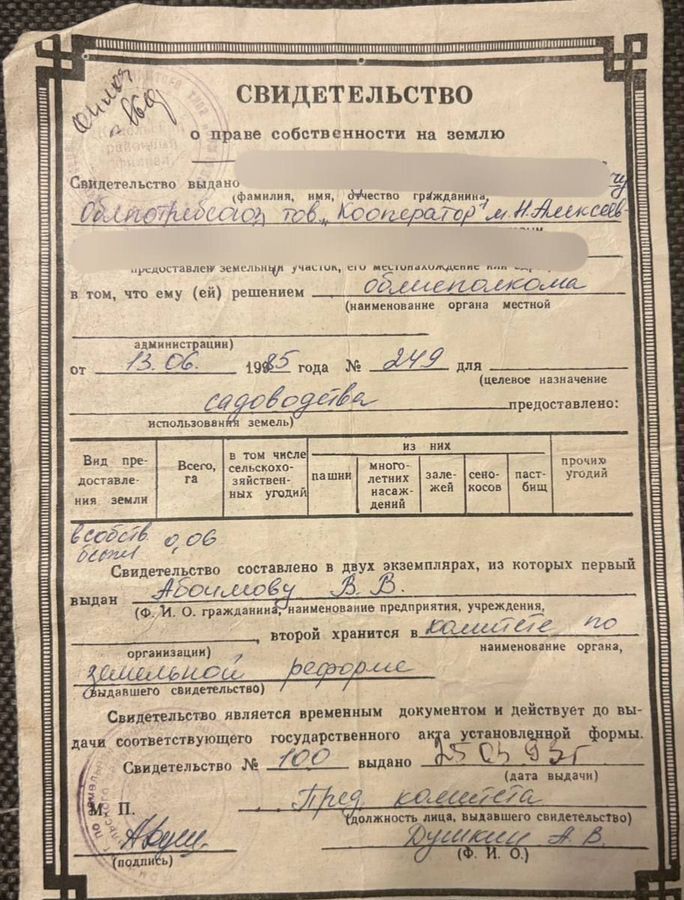 СВИДЕТЕЛЬСТВО
о праве собственности на землю
Свидетельство выдано
(фамилия, имя, отчество гражданина,
Облпотребсоюз тов „Кооператор" м. Н. Алексеев-
предоставлен земельный участок, его местонахождение или
в том, что ему (ей) решением облисполкома
(наименование органа местной
администрации)
от 13.06. 1985 года № 249 для
(целевое назначение
садоводства предоставлено:
использования земель)
Вид предоставле- Всего, в том числе из них прочих
ния земли га сельскохо- пашни много- зале- сено- паст- угодий
зяйствен- летних жей косов бищ
ных угодий насаж-
дений
в собств 0,06
Свидетельство составлено в двух экземплярах, из которых первый
выдан Абоимову В. В.
(Ф. И. О. гражданина, наименование предприятия, учреждения,
, второй хранится в комитете по
организации) наименование органа,
земельной реформе
(выдавшего свидетельство)
Свидетельство является временным документом и действует до вы-
дачи соответствующего государственного акта установленной формы.
Свидетельство № 100 выдано
(дата выдачи)
М. П. Пред. комитета
(должность лица, выдавшего свидетельство)
Душкин А. В.
(подпись) (Ф. И. О.)